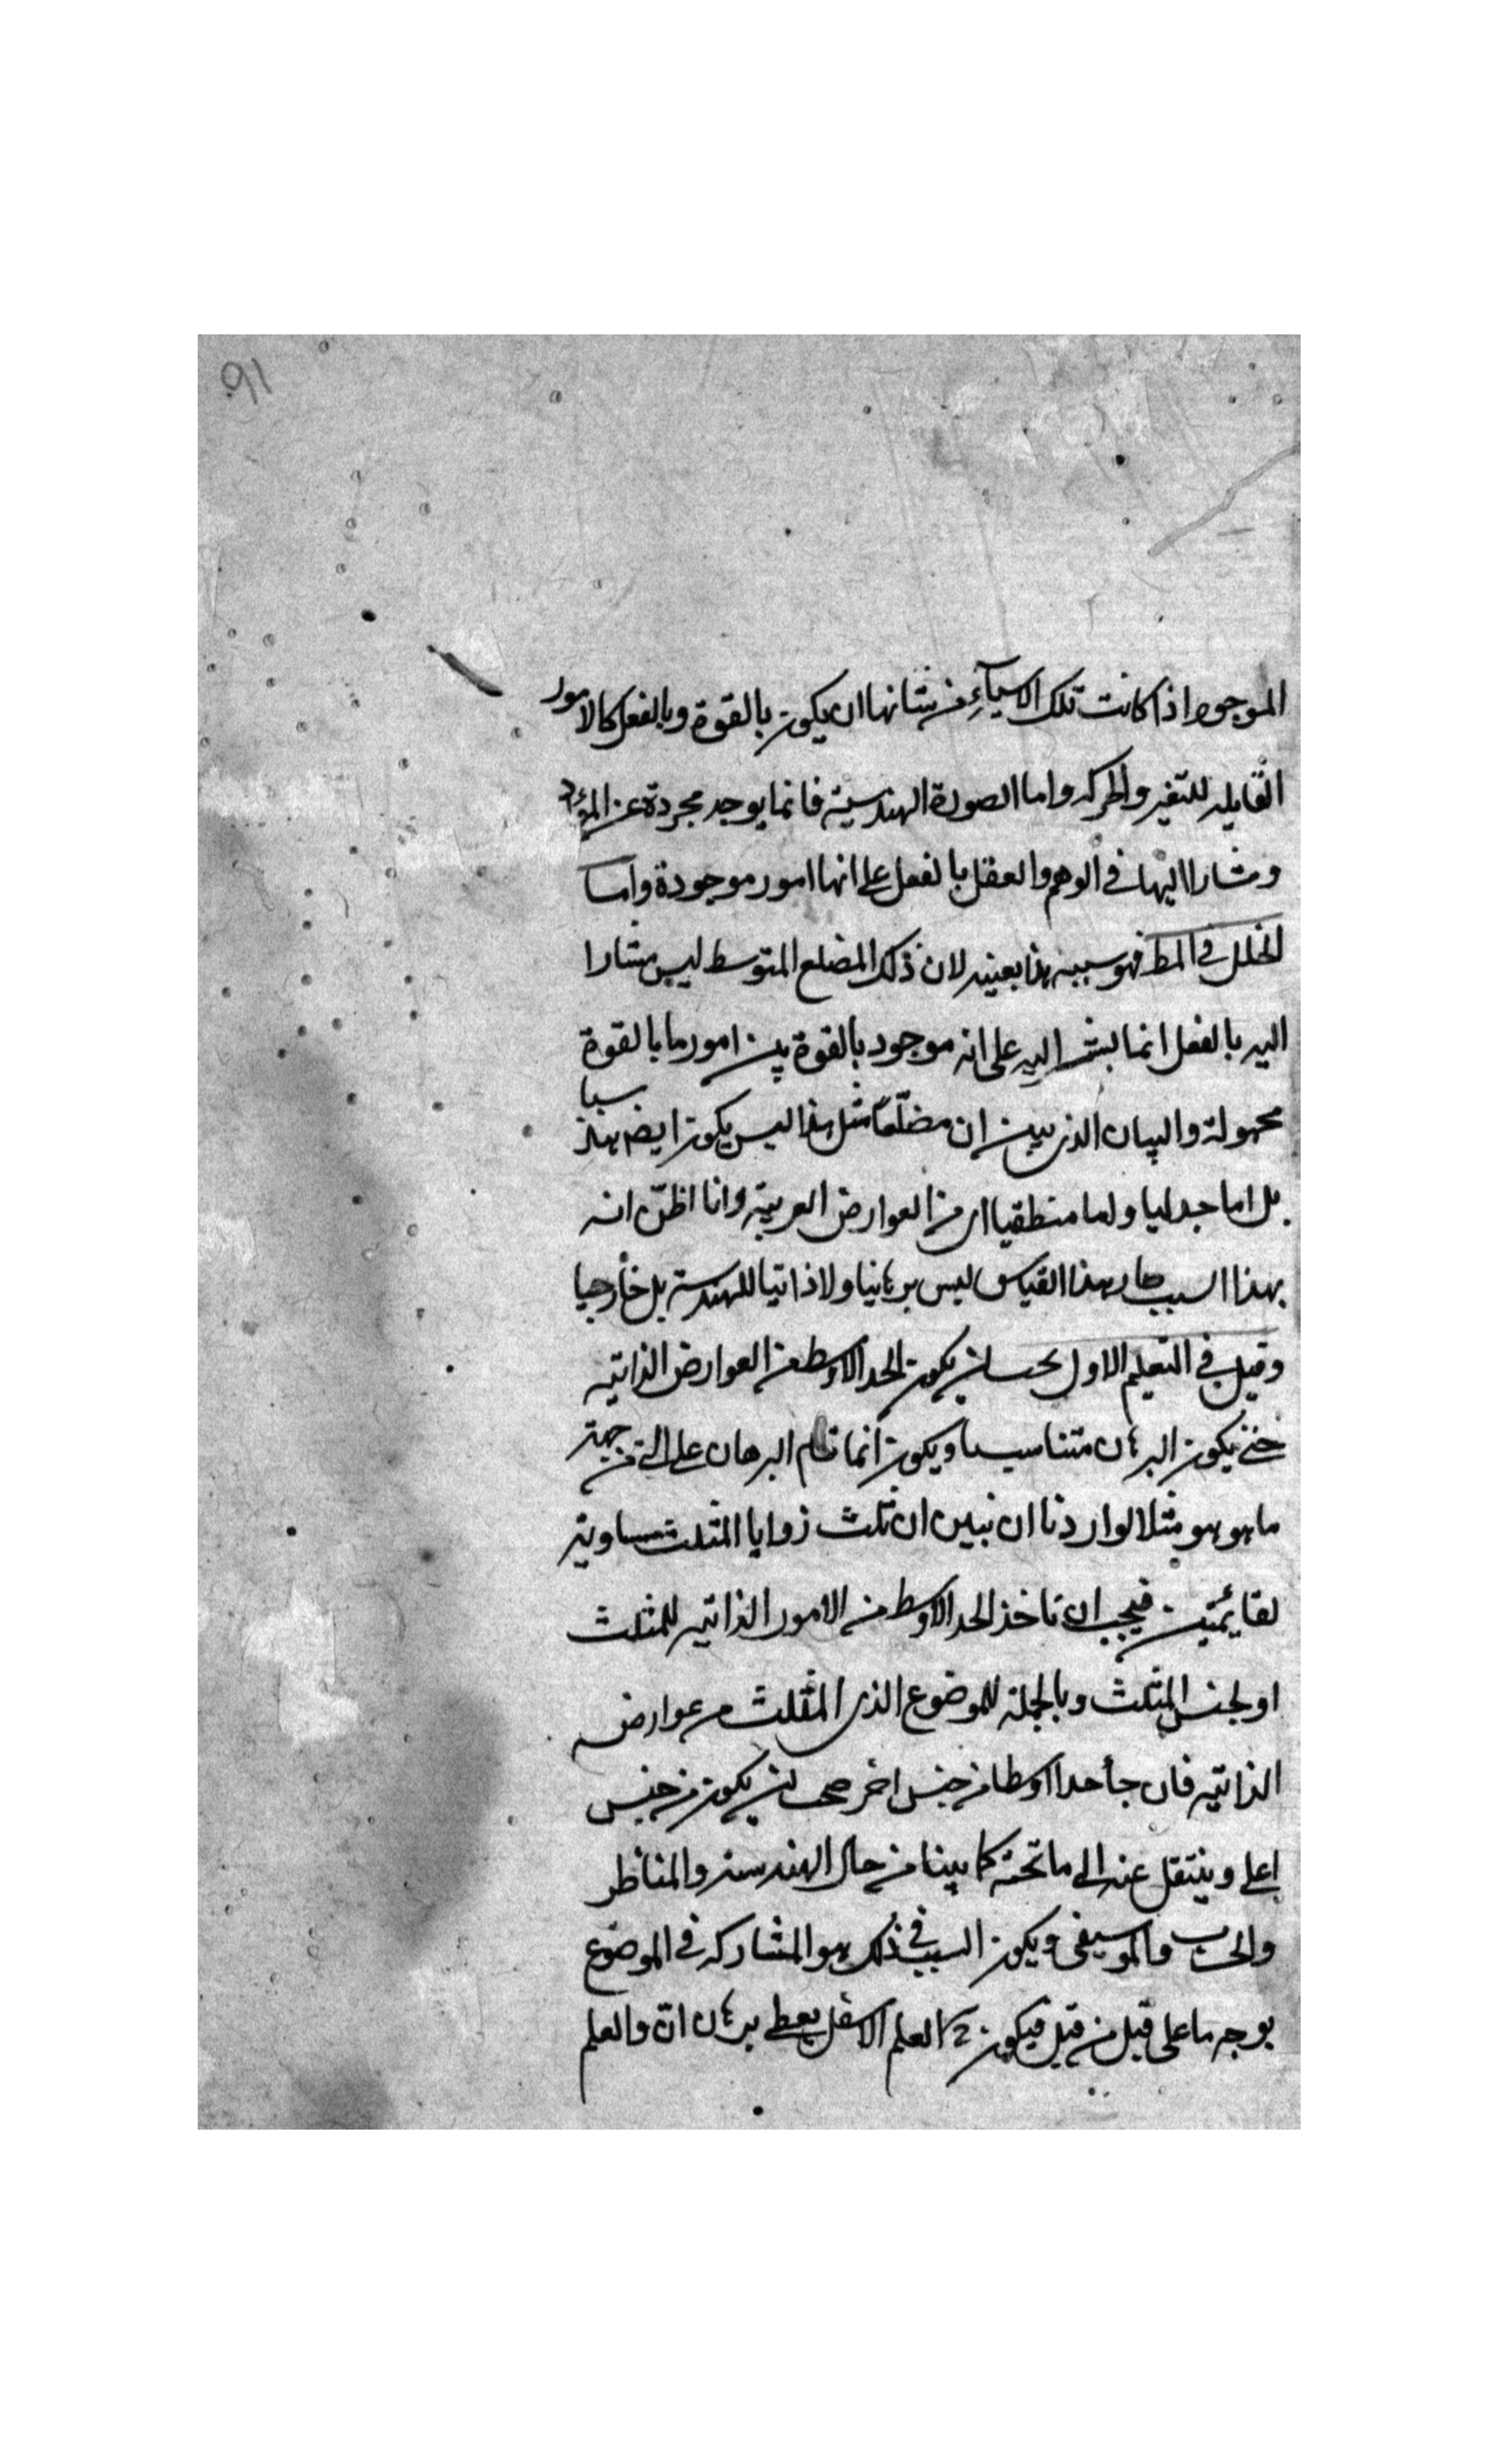 ٩١
الموجود اذا كانت تلك الاشياء من شانها ان يكون بالقوة وبالفعل كالامور
القابله للتغير والحركه واما الصورة الهندسية فانما يوجد مجردة عن المواد
ومشارا اليها في الوهم والعقل بالفعل على انها امور موجودة واما
الخلل في المط فهو سببه هذا بعينه لان ذلك المضلع المتوسط ليس مشارا
اليه بالفعل انما يشر اليه على انه موجود بالقوة بين امور ما بالقوة
مجهولة والبيان الذى يبين ان مضلّعًا مثل هذا ليس يكون ايضا هندسيا
بل اما جدليا واما منطقيا اى من العوارض الغريبة وانا اظنّ انه
بهذا السبب صار هذا القياس ليس برهانيا ولا ذاتيا للهندسة بل خارجيا
وقيل في التعليم الاول يجب ان يكون الحد الاوسط من العوارض الذاتيه
حتى يكون البرهان متناسبا ويكون انما قام البرهان على الشئ من جهة
ما هو هو مثلا لو اردنا ان نبين ان ثلث زوايا المثلث مساوية
لقايمتين فيجب ان ناخذ الحد الاوسط من الامور الذاتيه للمثلث
او لجنس المثلث وبالجملة للموضوع الذى المثلث من عوارضه
الذاتيه فان جأ حدا اوسطا من جنس اخر صح ان يكون من جنس
اعلى وينتقل عنه الى ما تحته كما بينا من حال الهندسة والمناظر
والحساب والموسيقى ويكون السبب في ذلك هو المشاركه في الموضوع
بوجه ما على قبل من قبل فيكون ح العلم الاسفل يعطى برهان انّ والعلم